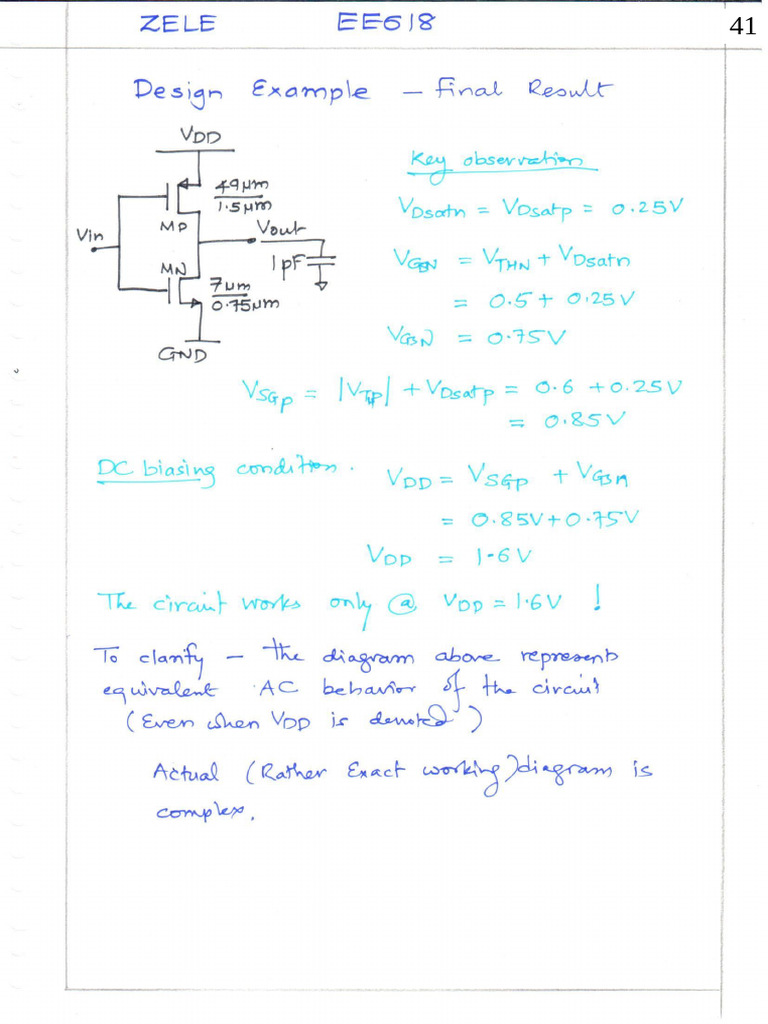 ZELE EE618 41
Design Example – Final Result
VDD
49µm
1.5µm
Vin
MP
Vout
1pF
MN
7µm
0.75µm
GND
Key observation
VDsatn = VDsatp = 0.25V
VGSN = VTHN + VDsatn
= 0.5 + 0.25V
VGSN = 0.75V
VSGp = |VTp| + VDsatp = 0.6 + 0.25V
= 0.85V
DC biasing condition. VDD = VSGP + VGSN
= 0.85V + 0.75V
VDD = 1.6V
The circuit works only @ VDD = 1.6V !
To clarify – the diagram above represents
equivalent AC behavior of the circuit
(Even when VDD is denoted)
Actual (Rather Exact working) diagram is
complex.